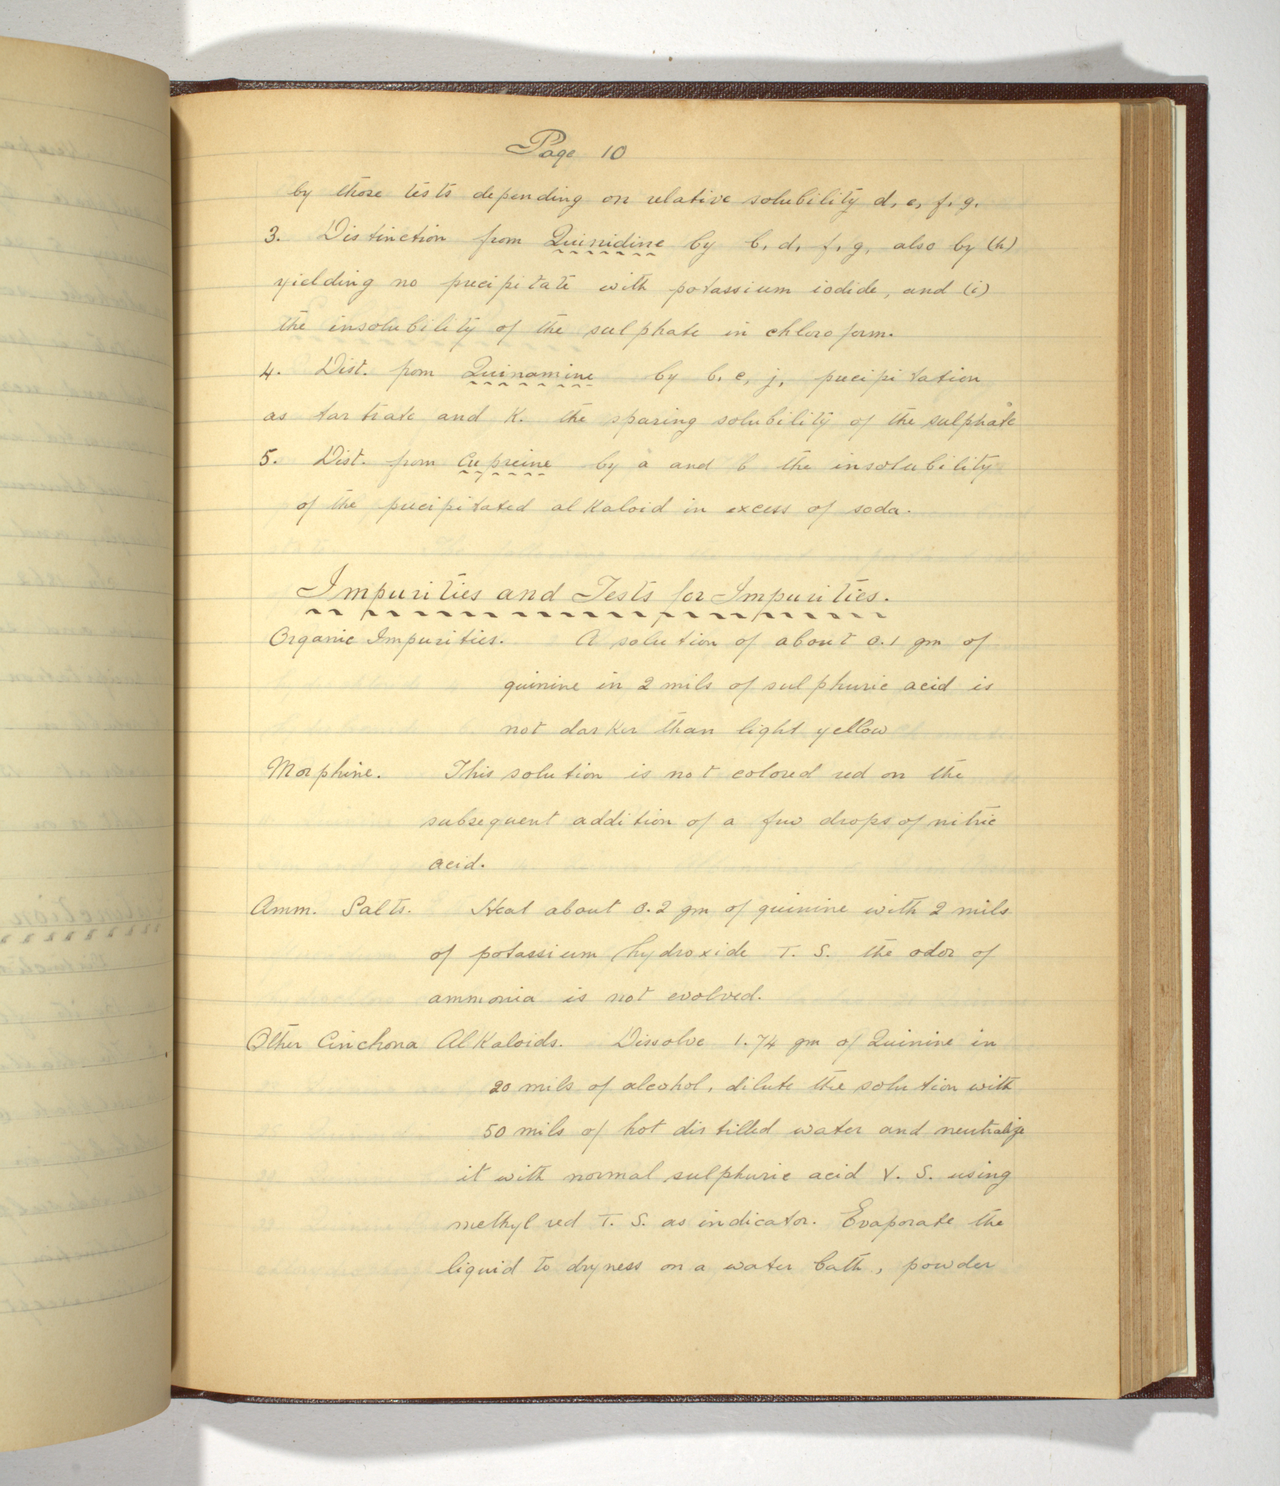 Page 10
by those tests depending on relative solubility d, e, f, g.
3. Distinction from Quinidine by b, d, f, g, also by (h)
yielding no precipitate with potassium iodide, and (i)
the insolubility of the sulphate in chloroform.
4. Dist. from Quinamine by b, e, j, precipitation
as tartrate and K. the sparing solubility of the sulphate
5. Dist. from Cupreine by a and b the insolubility
of the precipitated alkaloid in excess of soda.
Impurities and Tests for Impurities.
Organic Impurities. A solution of about 0.1 gm of
quinine in 2 mils of sulphuric acid is
not darker than light yellow
Morphine. This solution is not colored red on the
subsequent addition of a few drops of nitric
acid.
Amm. Salts. Heat about 0.2 gm of quinine with 2 mils
of potassium hydroxide T. S. the odor of
ammonia is not evolved.
Other Cinchona Alkaloids. Dissolve 1.74 gm of Quinine in
20 mils of alcohol, dilute the solution with
50 mils of hot distilled water and neutralize
it with normal sulphuric acid V. S. using
methyl red T. S. as indicator. Evaporate the
liquid to dryness on a water bath, powder